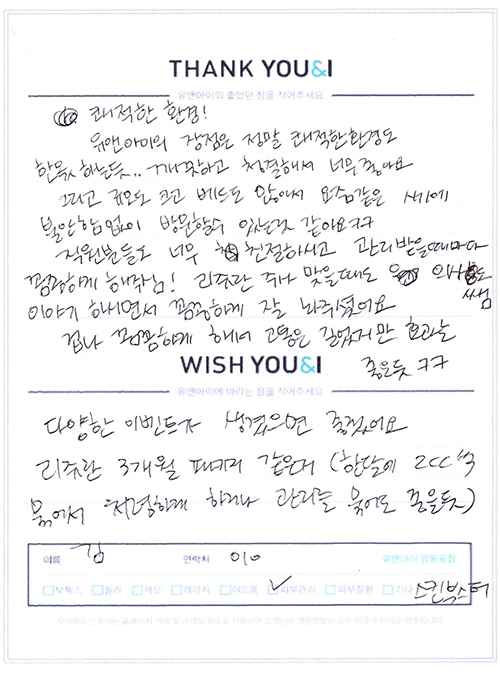 THANK YOU&I
유앤아이의 좋았던 점을 적어주세요
쾌적한 환경!
유앤아이의 장점은 정말 쾌적한환경도
한몫 하는듯.. 깨끗하고 청결해서 너무 좋아요
그리고 규모도 크고 베드도 많아서 요즘같은 시기에
불안함없이 방문할수 있는것 같아요ㅋㅋ
직원분들도 너무 친절하시고 관리받을때마다
꼼꼼하게 해주심! 리쥬란 주사 맞을때도 의사쌤도
이야기 하시면서 꼼꼼하게 잘 놔주셨어요
겁나 꼼꼼하게 해서 고통은 길었지만 효과는
좋은듯 ㅋㅋ
WISH YOU&I
유앤아이에 바라는 점을 적어주세요
다양한 이벤트가 생겼으면 좋겠어요
리쥬란 3개월 패키지 같은거 (한달에 2cc씩
묶어서 저렴하게 하거나 관리를 묶어도 좋을듯)
이름 김 연락처 010 유앤아이 영등포점
보톡스 필러 제모 레이저 여드름 ✓피부관리 피부질환 기타 스킨부스터